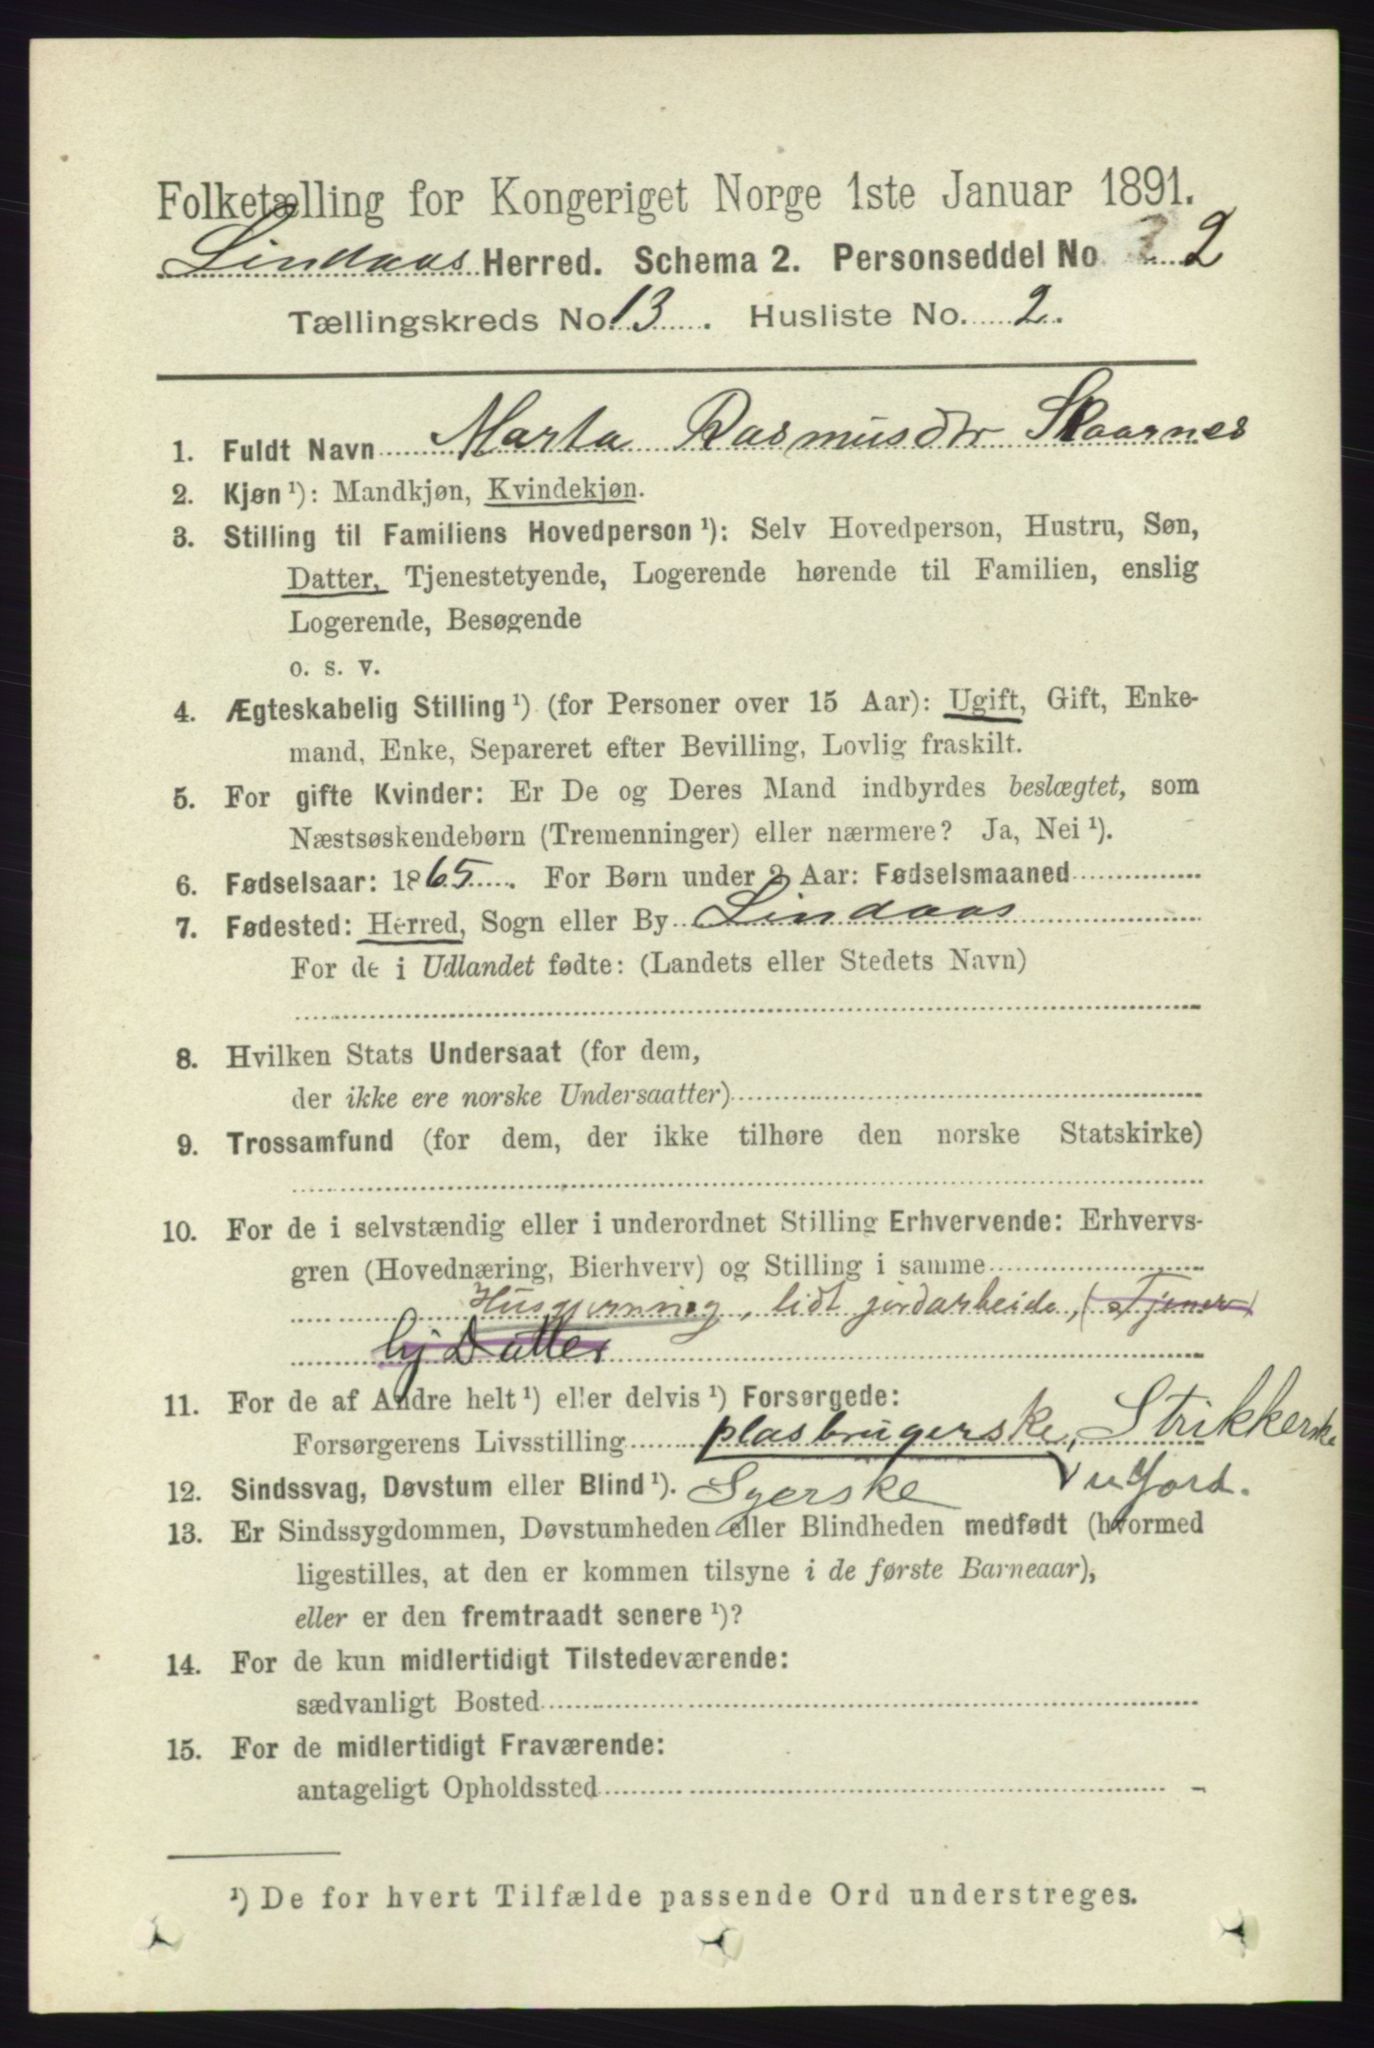 Folketælling for Kongeriget Norge 1ste Januar 1891.
Lindaas Herred. Schema 2. Personseddel No 2
Tællingskreds No. 13. Husliste No. 2.
1. Fuldt Navn Marta Rasmusdtr Skaarnes
2. Kjøn ¹): Mandkjøn, Kvindekjøn.
3. Stilling til Familiens Hovedperson ¹): Selv Hovedperson, Hustru, Søn,
Datter, Tjenestetyende, Logerende hørende til Familien, enslig
Logerende, Besøgende
o. s. v.
4. Ægteskabelig Stilling ¹) (for Personer over 15 Aar): Ugift, Gift, Enke-
mand, Enke, Separeret efter Bevilling, Lovlig fraskilt.
5. For gifte Kvinder: Er De og Deres Mand indbyrdes beslægtet, som
Næstsøskendebørn (Tremenninger) eller nærmere? Ja, Nei ¹).
6. Fødselsaar: 1865. For Børn under 2 Aar: Fødselsmaaned
7. Fødested: Herred, Sogn eller By Lindaas
For de i Udlandet fødte: (Landets eller Stedets Navn)
8. Hvilken Stats Undersaat (for dem,
der ikke ere norske Undersaatter)
9. Trossamfund (for dem, der ikke tilhøre den norske Statskirke)
10. For de i selvstændig eller i underordnet Stilling Erhvervende: Erhvervs-
gren (Hovednæring, Bierhverv) og Stilling i samme
Husgjerning, lidt jordarbeide, (Tjener)
Datter
11. For de af Andre helt ¹) eller delvis ¹) Forsørgede:
Forsørgerens Livsstilling plasbrugerske, Strikkerske
12. Sindssvag, Døvstum eller Blind ¹). Syerske u Jord.
13. Er Sindssygdommen, Døvstumheden eller Blindheden medfødt (hvormed
ligestilles, at den er kommen tilsyne i de første Barneaar),
eller er den fremtraadt senere ¹)?
14. For de kun midlertidigt Tilstedeværende:
sædvanligt Bosted
15. For de midlertidigt Fraværende:
antageligt Opholdssted
¹) De for hvert Tilfælde passende Ord understreges.